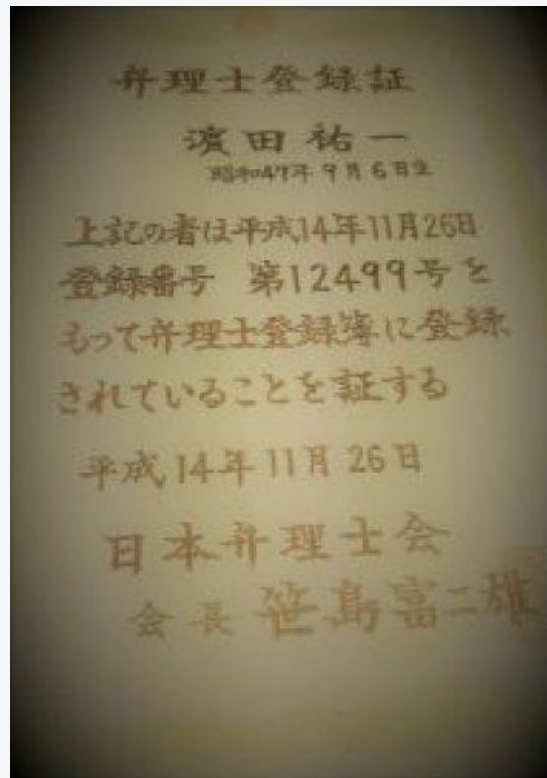 弁理士登録証
濱田祐一
昭和47年9月6日生
上記の者は平成14年11月26日
登録番号 第12499号を
もって弁理士登録簿に登録
されていることを証する
平成14年11月26日
日本弁理士会
会長 笹島富二雄